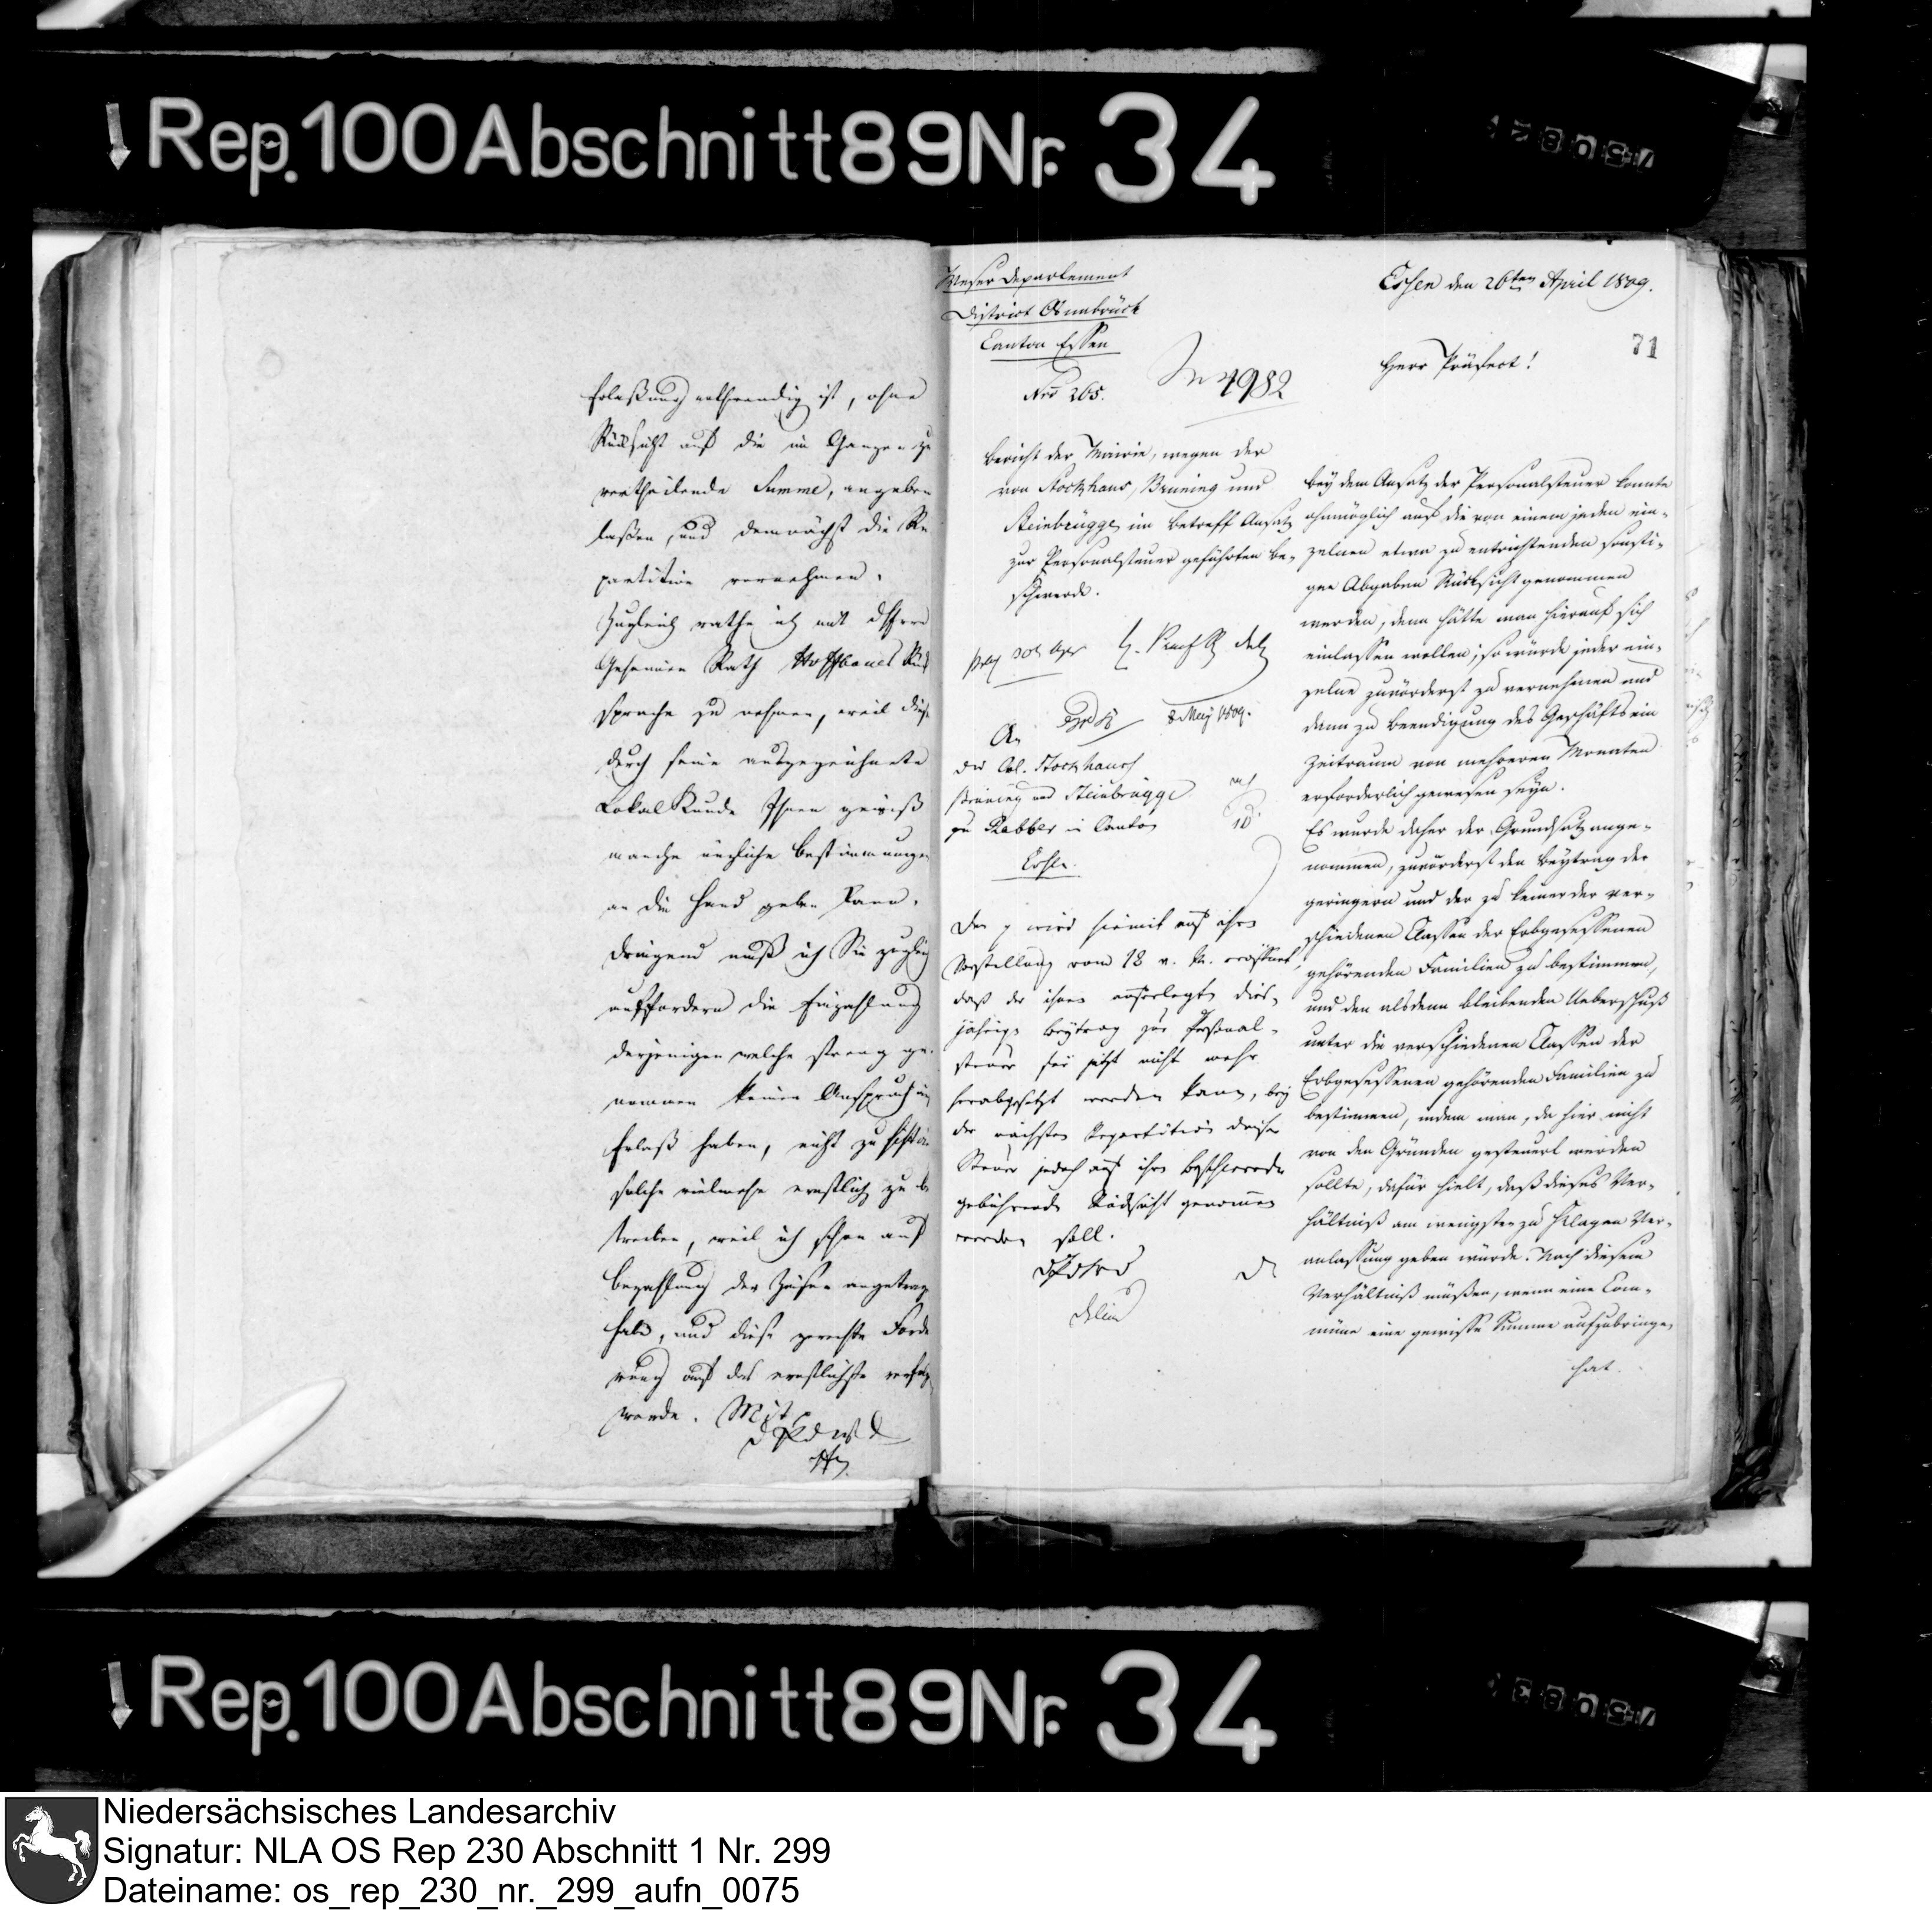 Rep. 100 Abschnitt 89 Nr. 34
Erlaßung nothwendig ist, ohne
Rücksicht auf die im Ganzen zu
vertheilende Summe, angeben
laßen, und demnächst die Re
partition vornehmen.
Zugleich rathe ich mit dem
Geheimen Rath Rück
sprache zu nehmen, weil dieser
durch seine ausgezeichnete
Lokal Kunde Ihnen gewiß
manche nützliche Bestimmungen
an die Hand geben kann.
Dringend muß ich Sie zugleich
auffordern die Einzahlung
derjenigen welche streng ge
nommen keinen Anspruch auf
Erlaß haben, nicht zu sistiren
solche vielmehr ernstlich zu be
treiben, weil ich schon auf
Bezahlung der Zinsen angetragen
habe, und diese gerechte Forde
rung auf das ernstlichste verfolgt
werde.
Weser Departement
District Osnabrück
Canton Essen
Nro 265.
4982
Bericht der Mairie, wegen der
von Stockhaus, Brüning und
Steinbrügge im Betreff Ansatz
zur Personalsteuer geführten Be-
schwerde.
8 May 1809.
An
die Col. Stockhaus
Brüning und Steinbrügge
zu Rabber in Canton
Essen.
Den p wird hiemit auf ihre
Vorstellung vom 18 v. M. eröffnet,
daß der ihnen auferlegte dies-
jährige Beytrag zur Personal-
steuer für jetzt nicht mehr
herabgesetzt werden kann, bey
der nächsten Repartition dieser
Steuer jedoch auf ihre Beschwerde
gebührende Rücksicht genommen
werden soll.
Essen den 26ten April 1809.
71
Herr Präfect!
Bey dem Ansatz der Personalsteuer konnte
ohnmöglich auf die von einem jeden ein-
zelnen etwa zu entrichtenden sonsti-
gen Abgaben Rücksicht genommen
werden, denn hätte man hierauf sich
einlassen wollen; so würde jeder ein-
zelne zuvörderst zu vernehmen und
dann zu Beendigung des Geschäfts ein
Zeitraum von mehreren Monaten
erforderlich gewesen seyn.
Es wurde daher der Grundsatz ange-
nommen, zuvörderst den Beytrag der
geringern und der zu keiner der ver-
schiedenen Classen der Erbgesessenen
gehörenden Familien zu bestimmen,
und den alsdenn bleibenden Ueberschuß
unter die verschiedenen Classen der
Erbgesessenen gehörenden Familien zu
bestimmen, indem man, da hier nicht
von den Gründen gesteuert werden
sollte, dafür hielt, daß dieses Ver-
hältniß am wenigsten zu Klagen Ver-
anlassung geben würde. Nach diesem
Verhältniß müßen, wenn eine Com-
müne eine gewisse Summe aufzubringen
hat
Rep. 100 Abschnitt 89 Nr. 34
Niedersächsisches Landesarchiv
Signatur: NLA OS Rep 230 Abschnitt 1 Nr. 299
Dateiname: os_rep_230_nr._299_aufn_0075